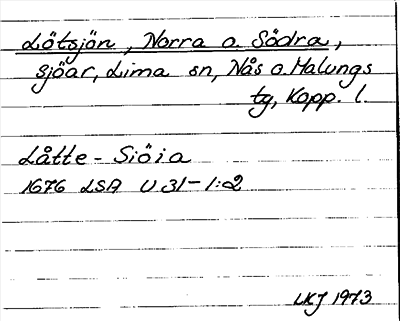 Lötsjön, Norra o. Södra,
sjöar, Lima sn, Nås o. Malungs
tg, Kopp. l.
Låtte - Siöia
1676 LSA U 31-1:2
LKJ 1973